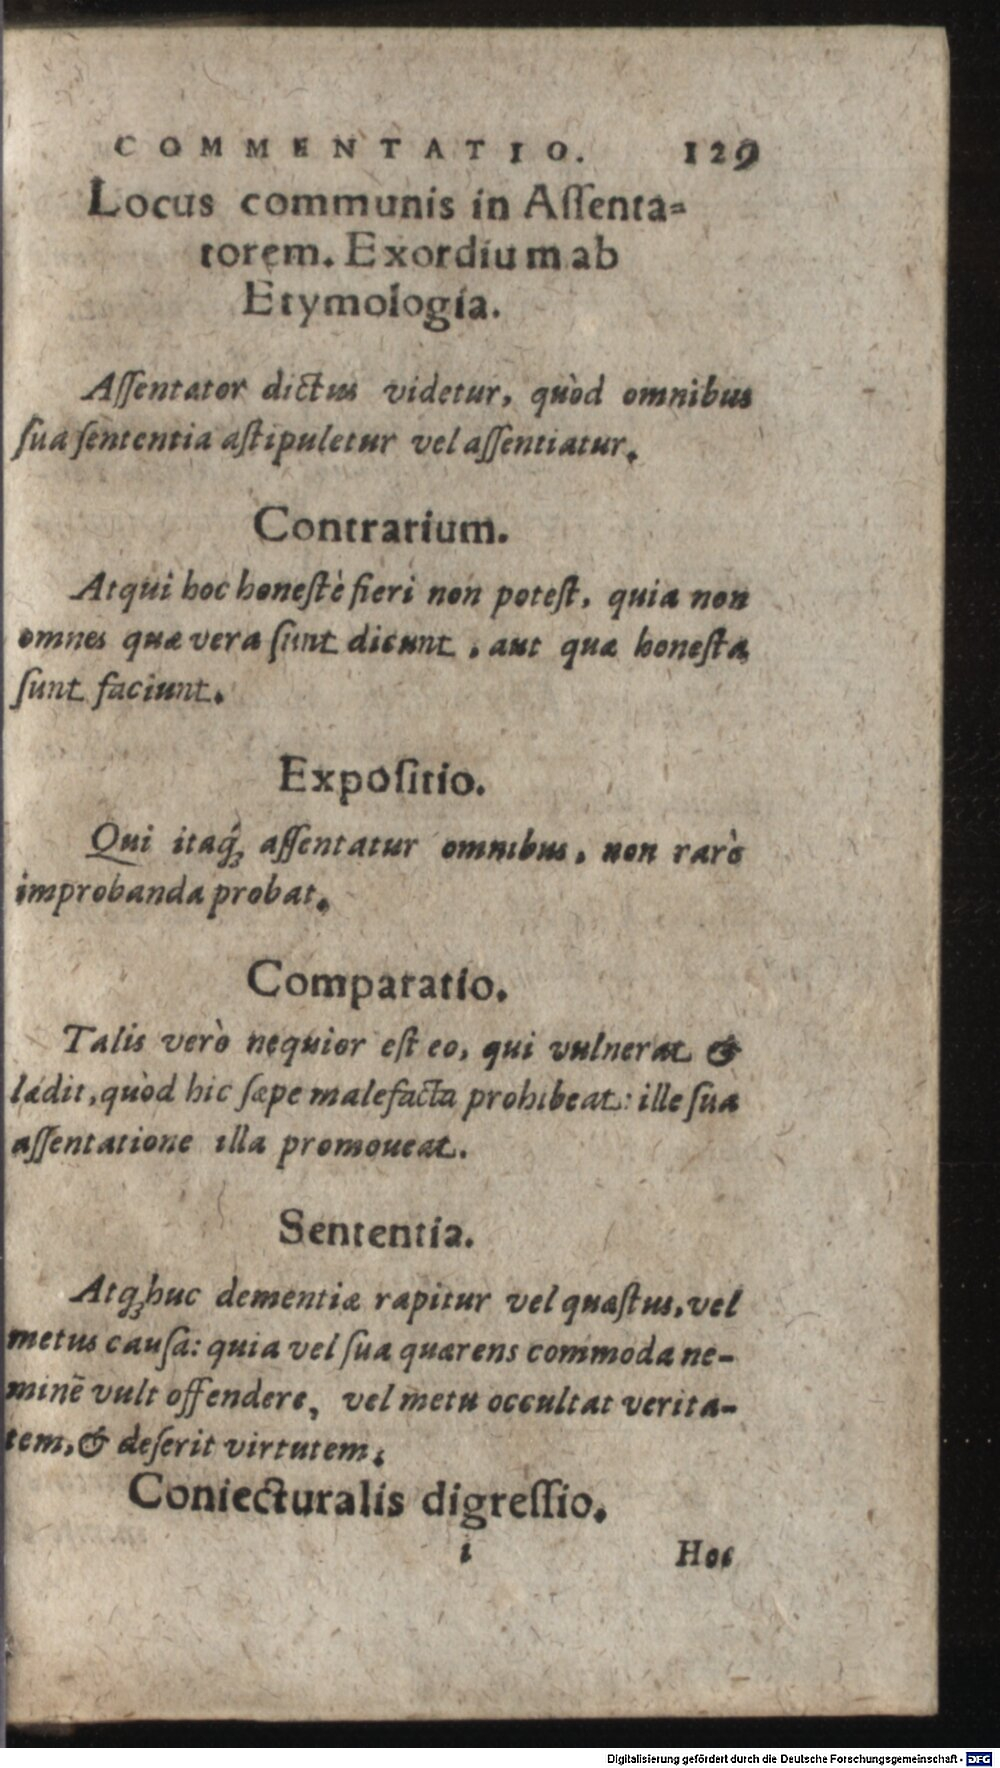 COMMENTATIO. 129
Locus communis in Aſſenta-
torem. Exordium ab
Etymologia.
Aſſentator dictus videtur, quòd omnibus
ſua ſententia aſtipuletur vel aſſentiatur.
Contrarium.
Atqui hoc honeſtè fieri non poteſt, quia non
omnes quæ vera ſunt dicunt, aut quæ honeſta
ſunt faciunt.
Expoſitio.
Qui itaq́ꝫ aſſentatur omnibus, non rarò
improbanda probat.
Comparatio.
Talis verò nequior eſt eo, qui vulnerat &
lædit, quòd hic ſæpe malefacta prohibeat: ille ſua
aſſentatione illa promoueat.
Sententia.
Atqꝫ huc dementiæ rapitur vel quæſtus, vel
metus cauſa: quia vel ſua quærens commoda ne-
minẽ vult offendere, vel metu occultat verita-
tem, & deſerit virtutem.
Coniecturalis digreſſio.
i Hoc
Digitalisierung gefördert durch die Deutsche Forschungsgemeinschaft - DFG